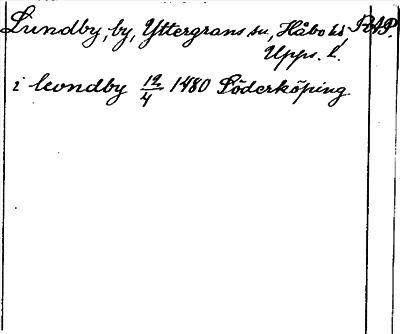 Lundby, by, Yttergrans sn, Håbo hd RAP.
Upps. l.
i leondby 12/4 1480 Söderköping